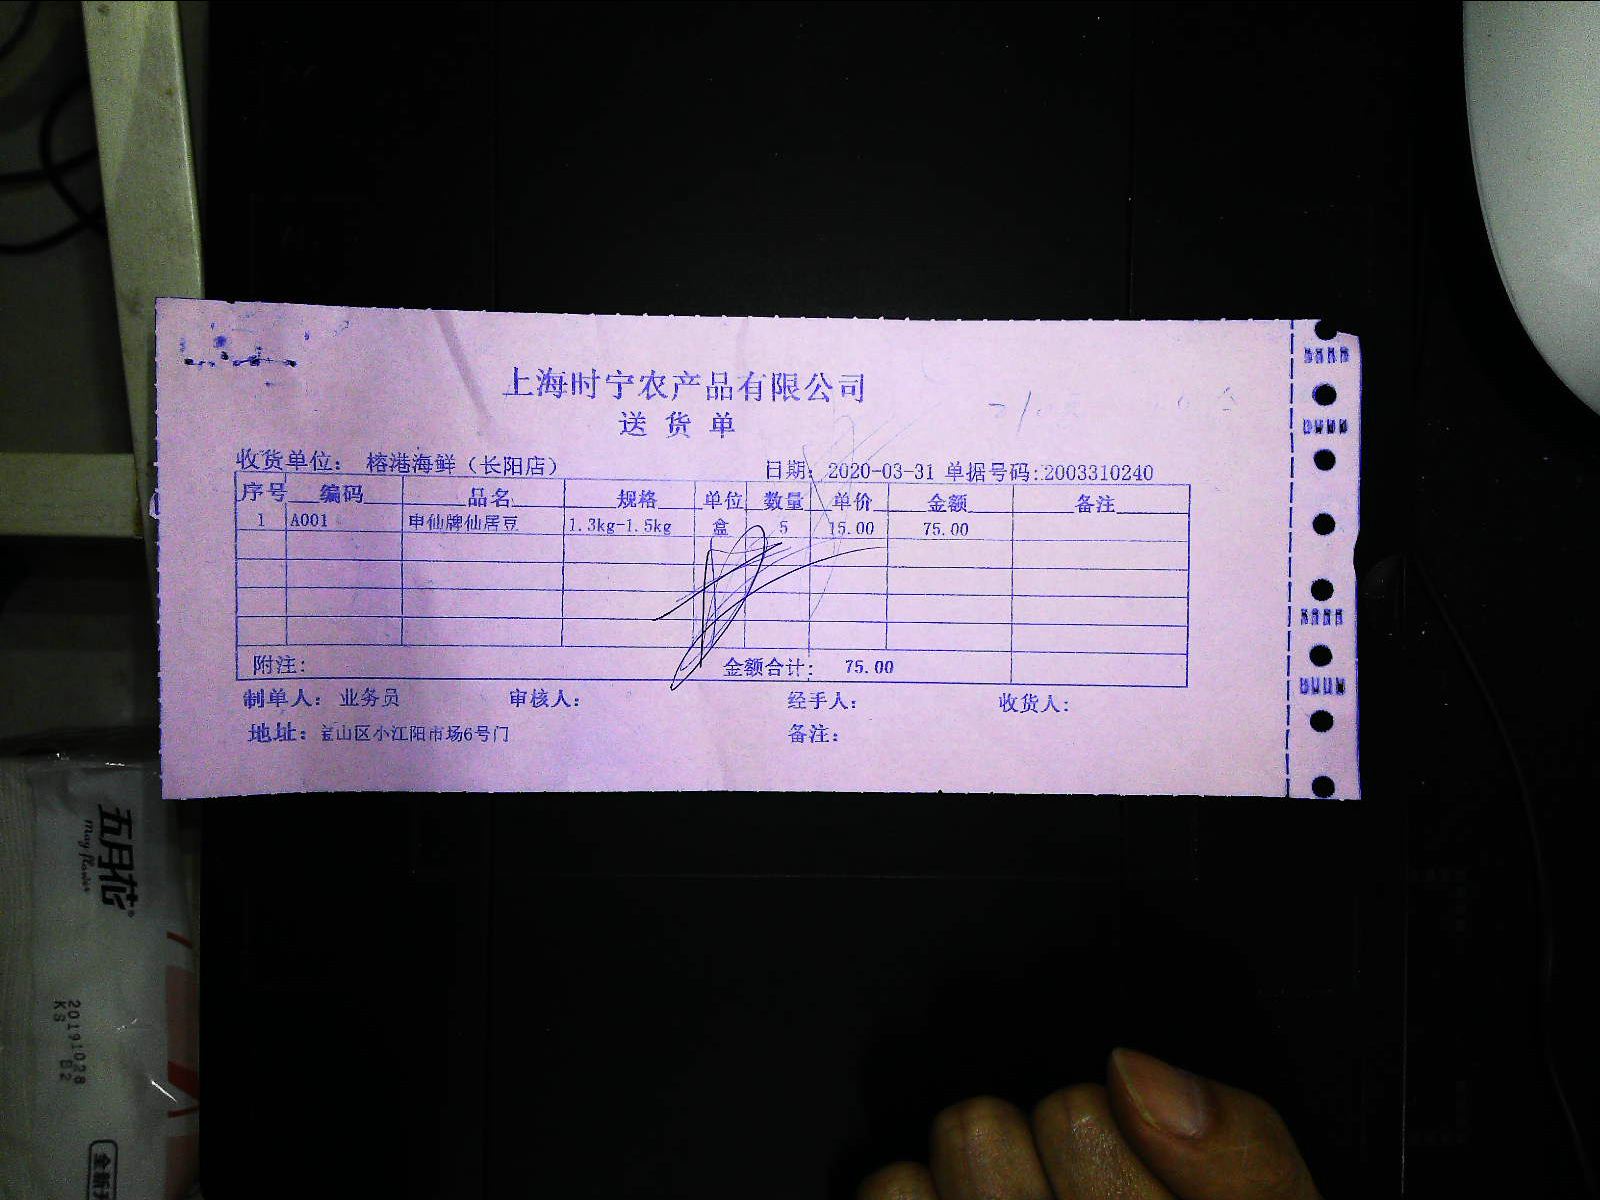 上海时宁农产品有限公司
送 货 单
收货单位： 榕港海鲜（长阳店） 日期：2020-03-31 单据号码：2003310240
序号 编码 品名 规格 单位 数量 单价 金额 备注
1 A001 申仙牌仙居豆 1.3kg-1.5kg 盒 5 15.00 75.00
附注： 金额合计： 75.00
制单人： 业务员 审核人： 经手人： 收货人：
地址： 宝山区小江阳市场6号门 备注：
五月花
May flower
20191028
KS B2